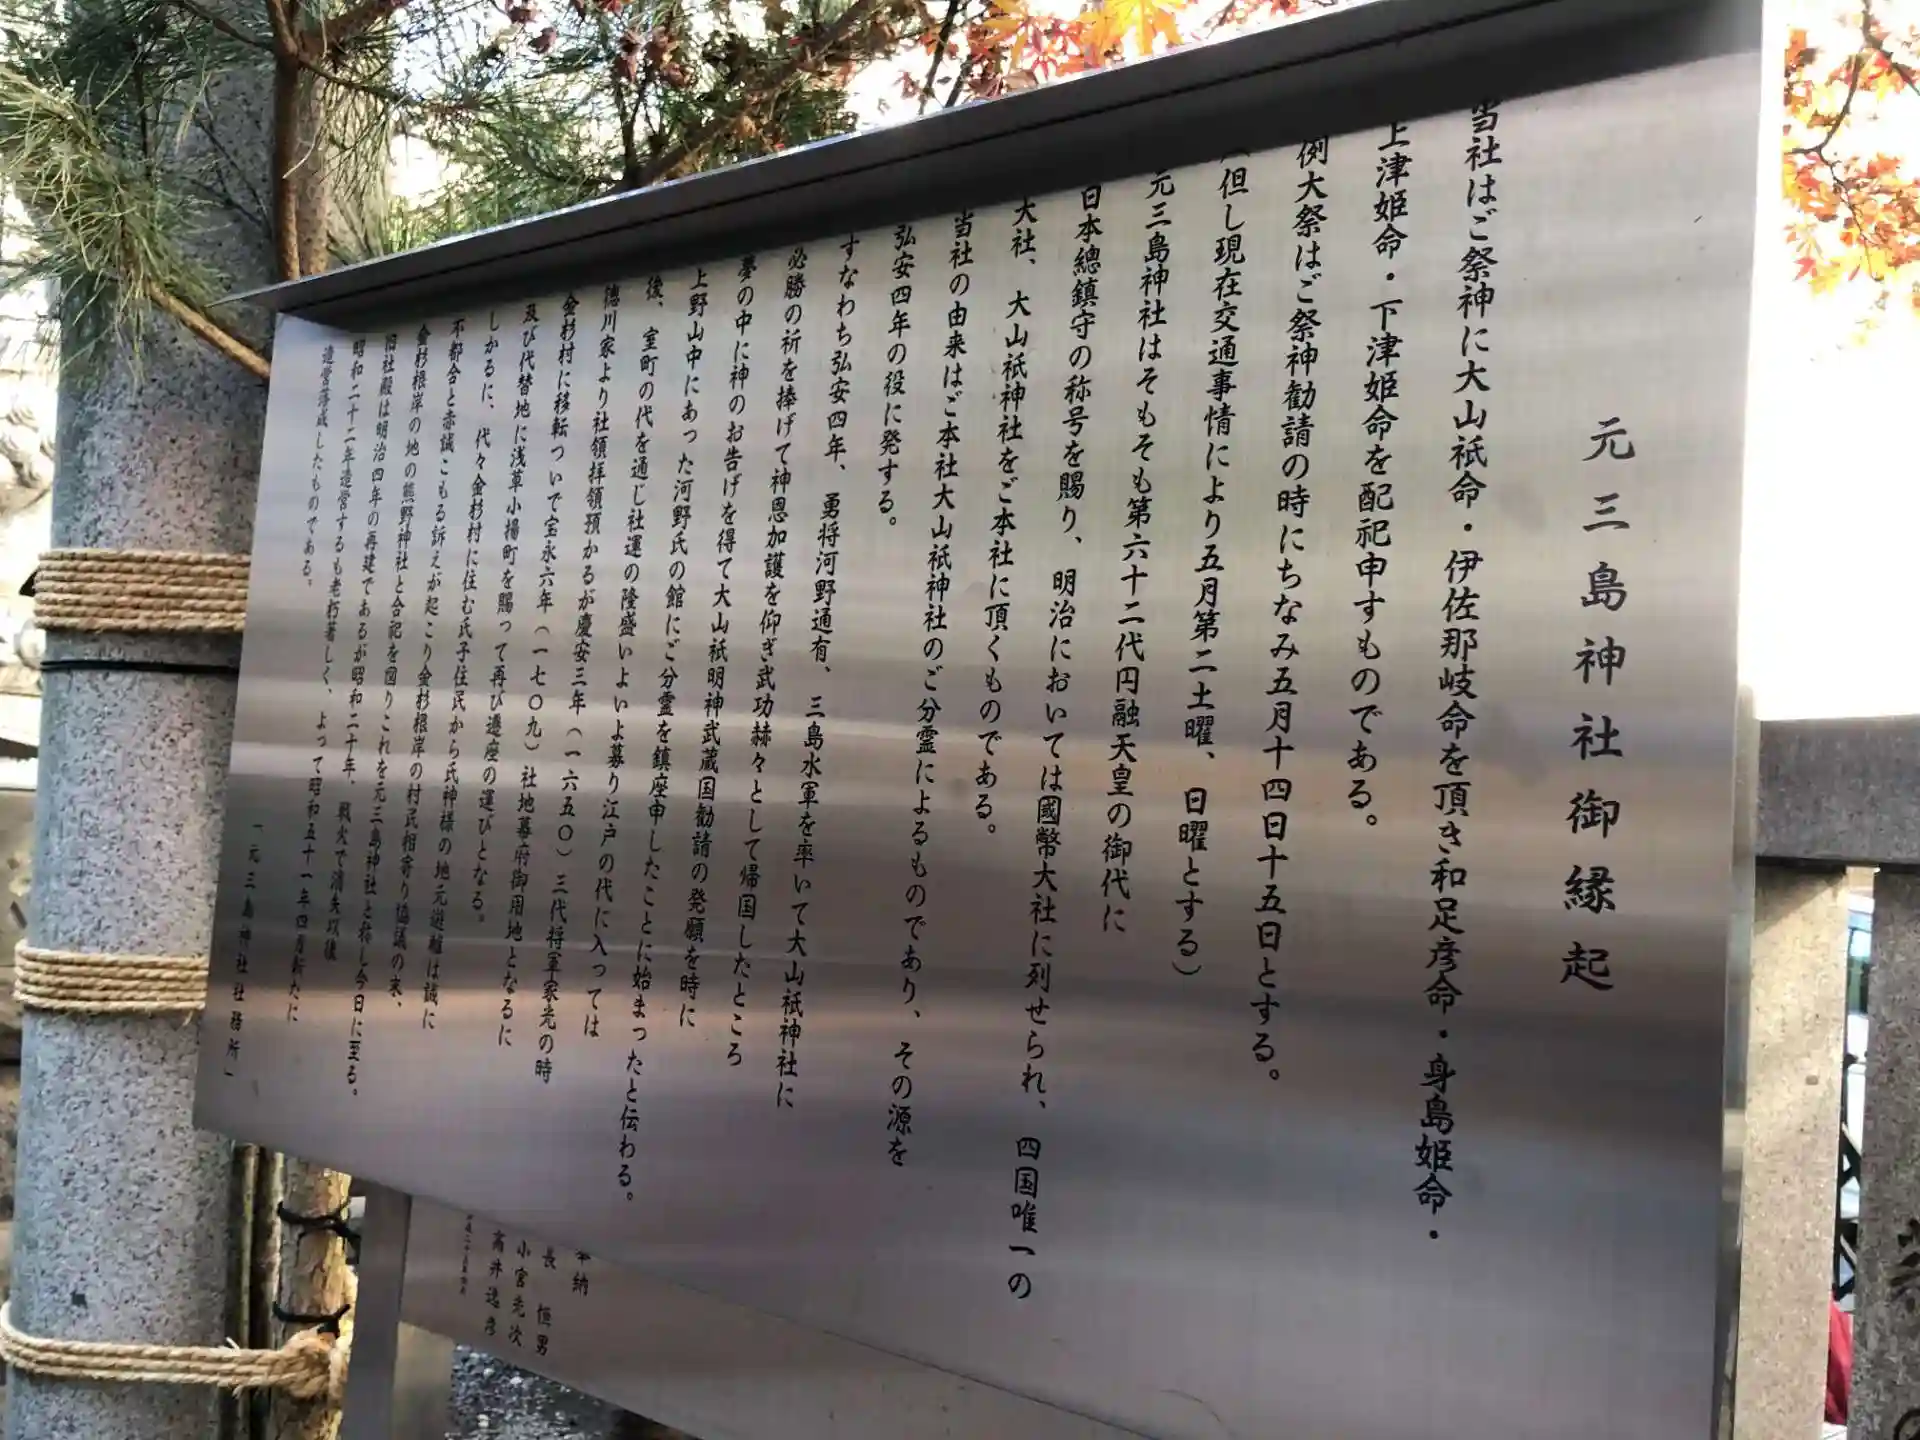 元三島神社御縁起
当社はご祭神に大山祇命・伊佐那岐命を頂き和足彦命・身島姫命・
上津姫命・下津姫命を配祀申すものである。
例大祭はご祭神勧請の時にちなみ五月十四日十五日とする。
(但し現在交通事情により五月第二土曜、日曜とする)
元三島神社はそもそも第六十二代円融天皇の御代に
日本總鎮守の称号を賜り、明治においては國幣大社に列せられ、四国唯一の
大社、大山祇神社をご本社に頂くものである。
当社の由来はご本社大山祇神社のご分霊によるものであり、その源を
弘安四年の役に発する。
すなわち弘安四年、勇将河野通有、三島水軍を率いて大山祇神社に
必勝の祈を捧げて神恩加護を仰ぎ武功赫々として帰国したところ
夢の中に神のお告げを得て大山祇明神武蔵国勧請の発願を時に
上野山中にあった河野氏の館にご分霊を鎮座申したことに始まったと伝わる。
後、室町の代を通じ社運の隆盛いよいよ募り江戸の代に入っては
徳川家より社領拝領預かるが慶安三年(一六五〇)三代将軍家光の時
金杉村に移転ついで宝永六年(一七〇九)社地幕府御用地となるに
及び代替地に浅草小揚町を賜って再び遷座の運びとなる。
しかるに、代々金杉村に住む氏子住民から氏神様の地元遊離は誠に
不都合と赤誠こもる訴えが起こり金杉根岸の村民相寄り協議の末、
金杉根岸の地の熊野神社と合祀を図りこれを元三島神社と称し今日に至る。
旧社殿は明治四年の再建であるが昭和二十年、戦火で消失以後
昭和二十二年造営するも老朽著しく、よって昭和五十一年四月新たに
造営落成したものである。
「元三島神社社務所」
奉納
長 恒男
小宮光次
高井逸彦